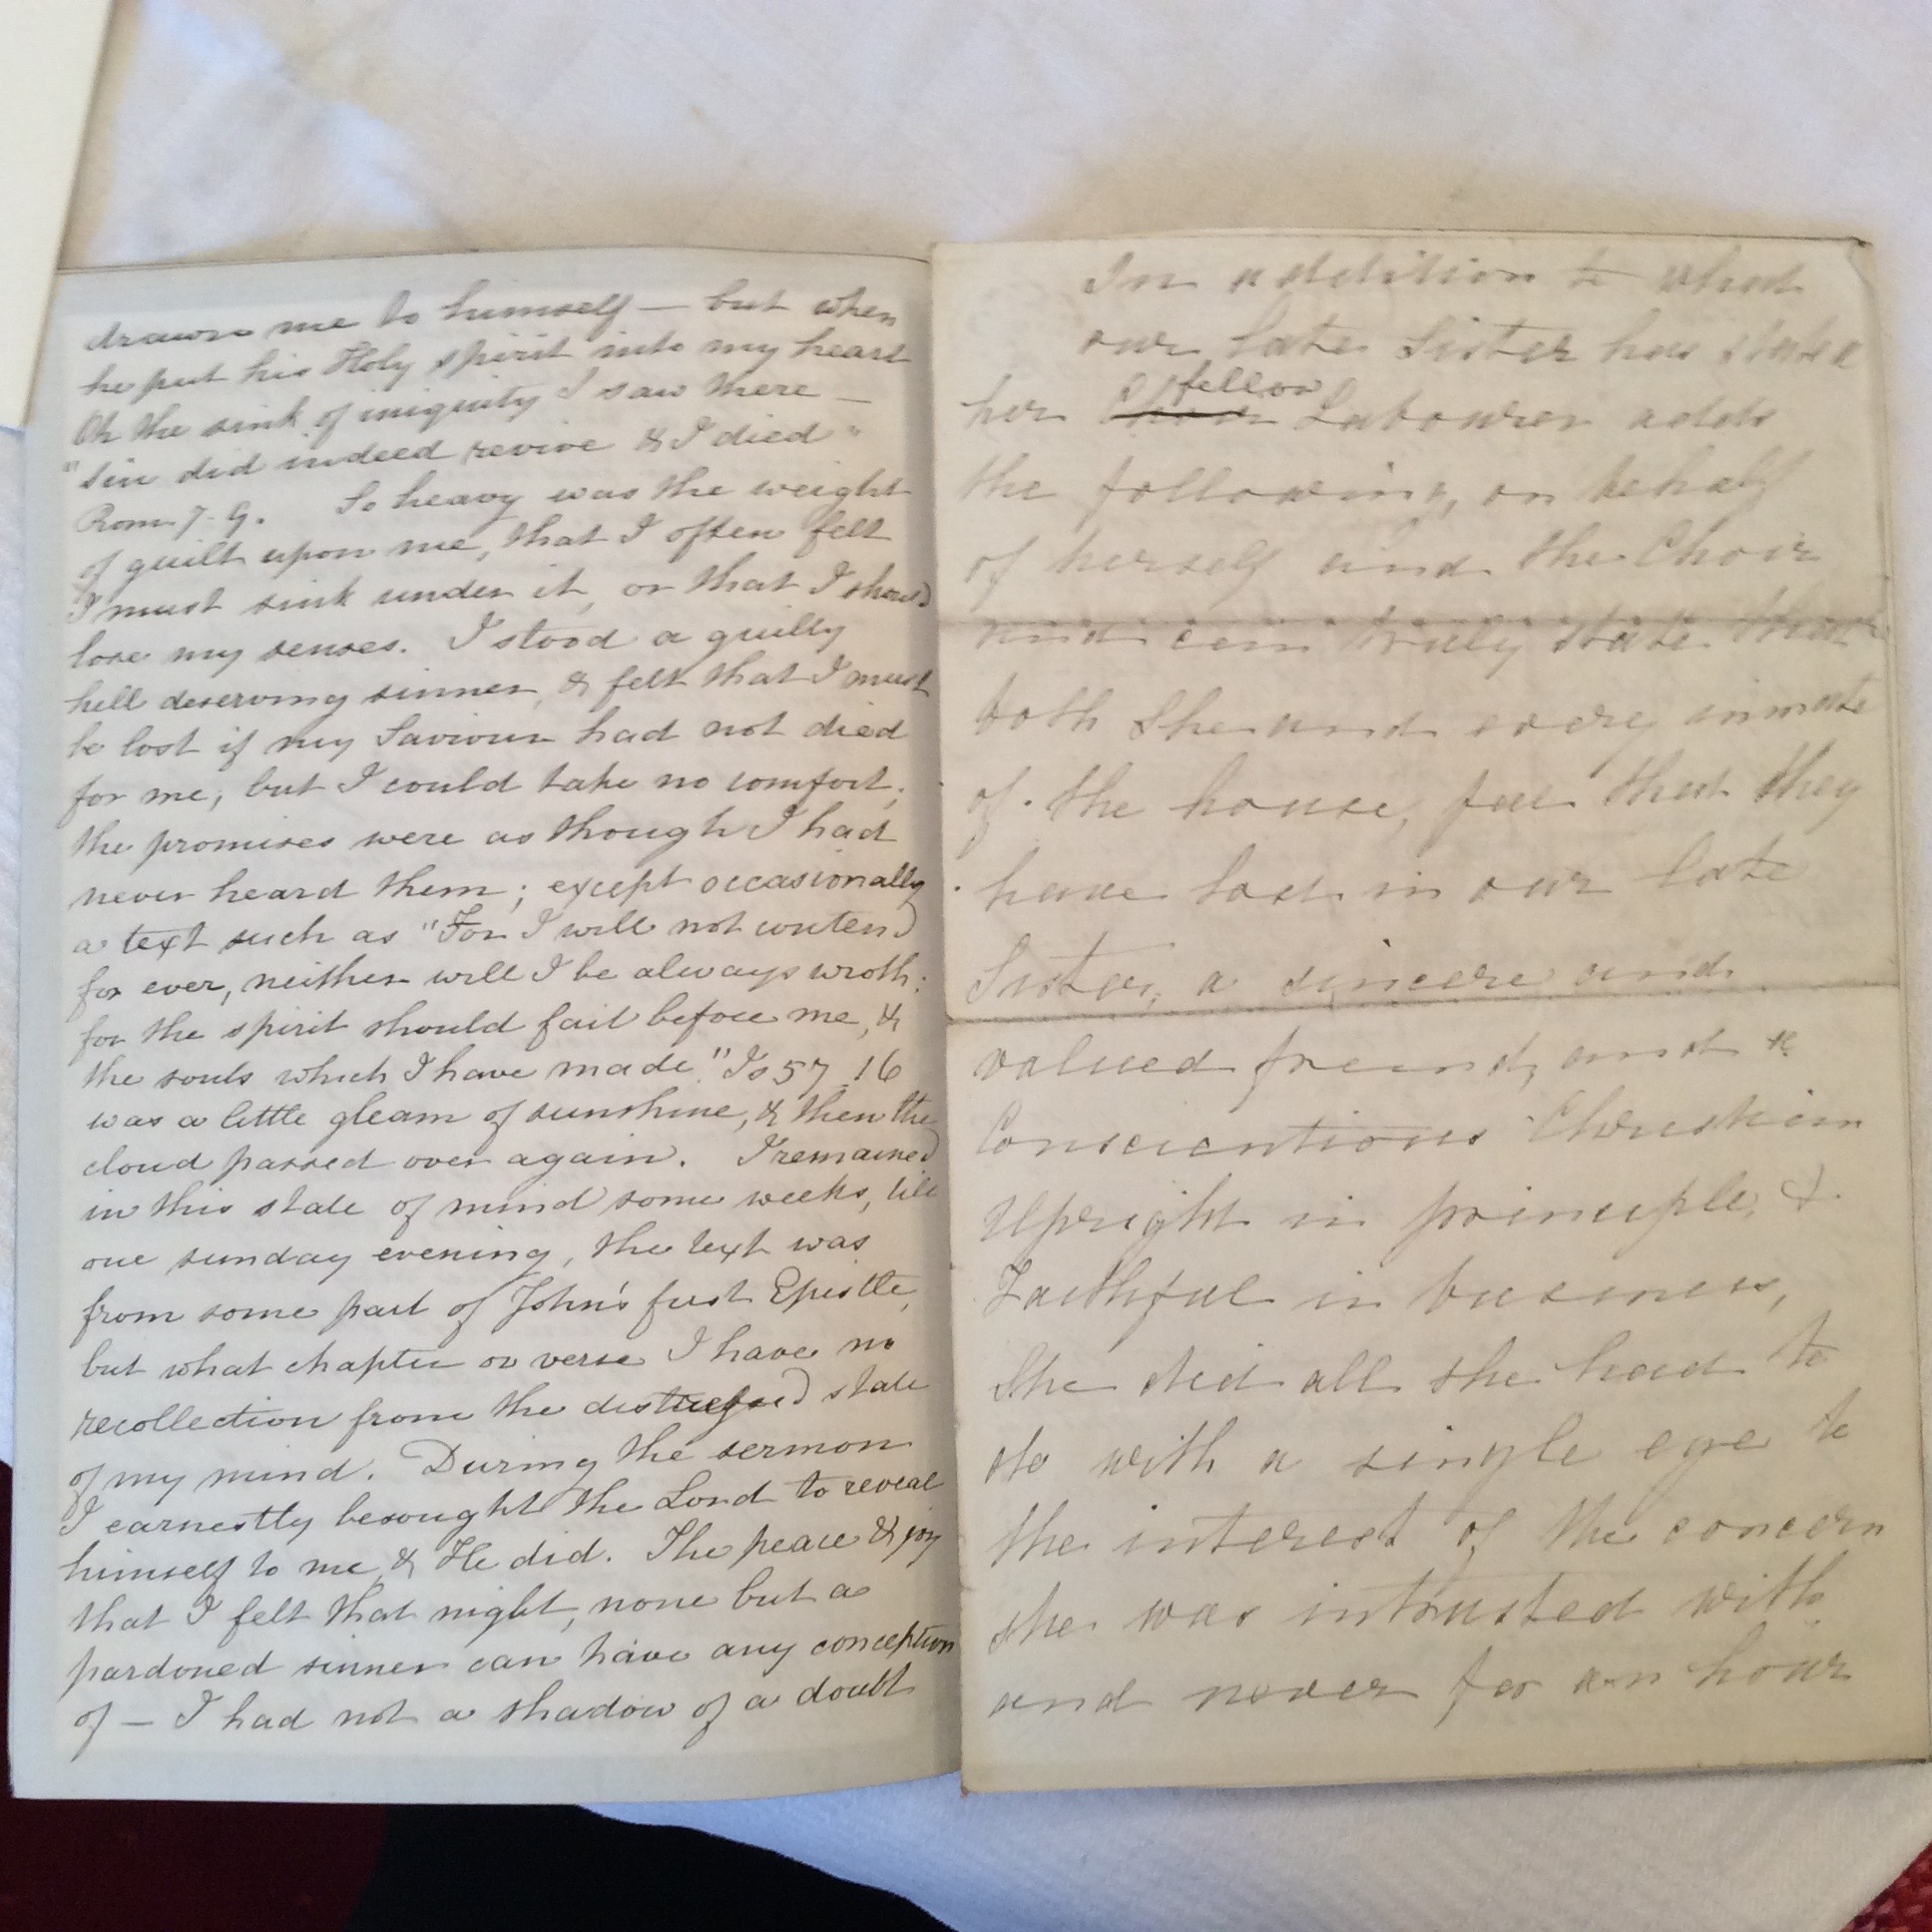 drawn me to himself — but when
he put his Holy spirit into my heart
Oh the sink of iniquity I saw there —
"Sin did indeed revive & I died"
Rom 7. 9. So heavy was the weight
of guilt upon me, that I often felt
I must sink under it, or that I should
lose my senses. I stood a guilty
hell deserving sinner, & felt that I must
be lost if my Saviour had not died
for me, but I could take no comfort;
the promises were as though I had
never heard them; except occasionally
a text such as "For I will not contend
for ever, neither will I be always wroth:
for the spirit should fail before me, &
the souls which I have made." Is 57. 16
was a little gleam of sunshine, & then the
cloud passed over again. I remained
in this state of mind some weeks, till
one sunday evening, the text was
from some part of John's first Epistle,
but what chapter or verse I have no
recollection from the distressed state
of my mind. During the sermon
I earnestly besought the Lord to reveal
himself to me, & He did. The peace & joy
that I felt that night, none but a
pardoned sinner can have any conception
of — I had not a shadow of a doubt
In addition to what
our late Sister has stated
her fellow Labourer adds
the following, on behalf
of herself and the Choir
and can truly state that
both She and every inmate
of the house, feel that they
have lost in our late
Sister, a sincere and
valued friend, and a
Conscientious Christian
Upright in principle, &
Faithful in business,
She did all she had to
do with a single eye to
the interest of the concern
she was intrusted with
and never for an hour